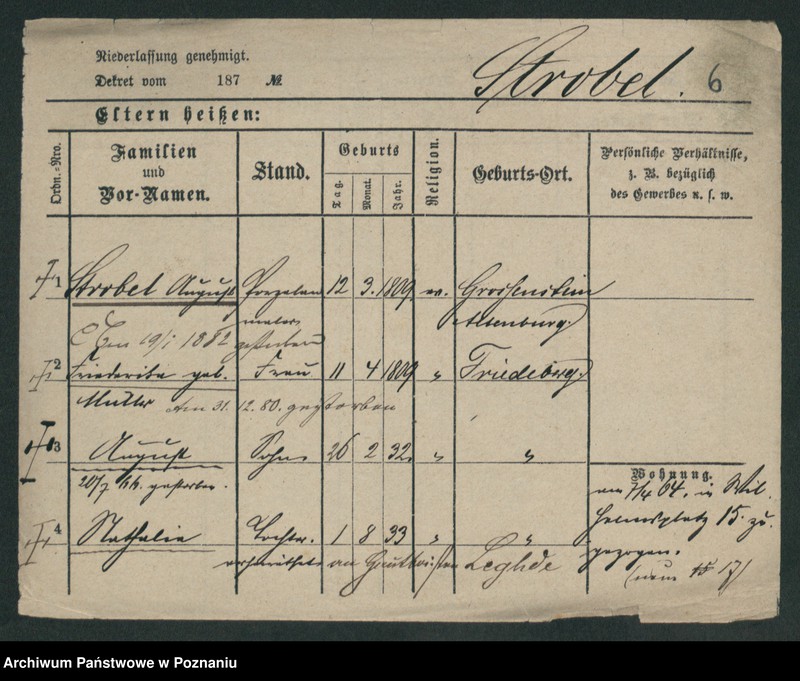 Niederlassung genehmigt.
Dekret vom 187 №
Strobel. 6
Eltern heißen:
Ordn.=Nro.
Familien und Vor-Namen.
Stand.
Geburts
Tag.
Monat.
Jahr.
Religion.
Geburts-Ort.
Persönliche Verhältnisse, z. B. bezüglich des Gewerbes u. s. w.
1 Strobel August Porzelan 12 3. 1809. ev. Grossenstein
maler Altenburg.
19/1 1882 gestorben
2 Friederike geb. Frau 11 4 1809 " Friedeberg.
Müller am 31. 12. 80. gestorben
3 August Sohn 26 2 32. " "
20/7 66. gestorben.
Wohnung.
am 7/4 64. in Wil
helmsplatz 15. zu
gezogen.
(neu 15 17)
4 Nathalie Tochter. 1 8 33 " "
verheirathet an Leghde
Archiwum Państwowe w Poznaniu